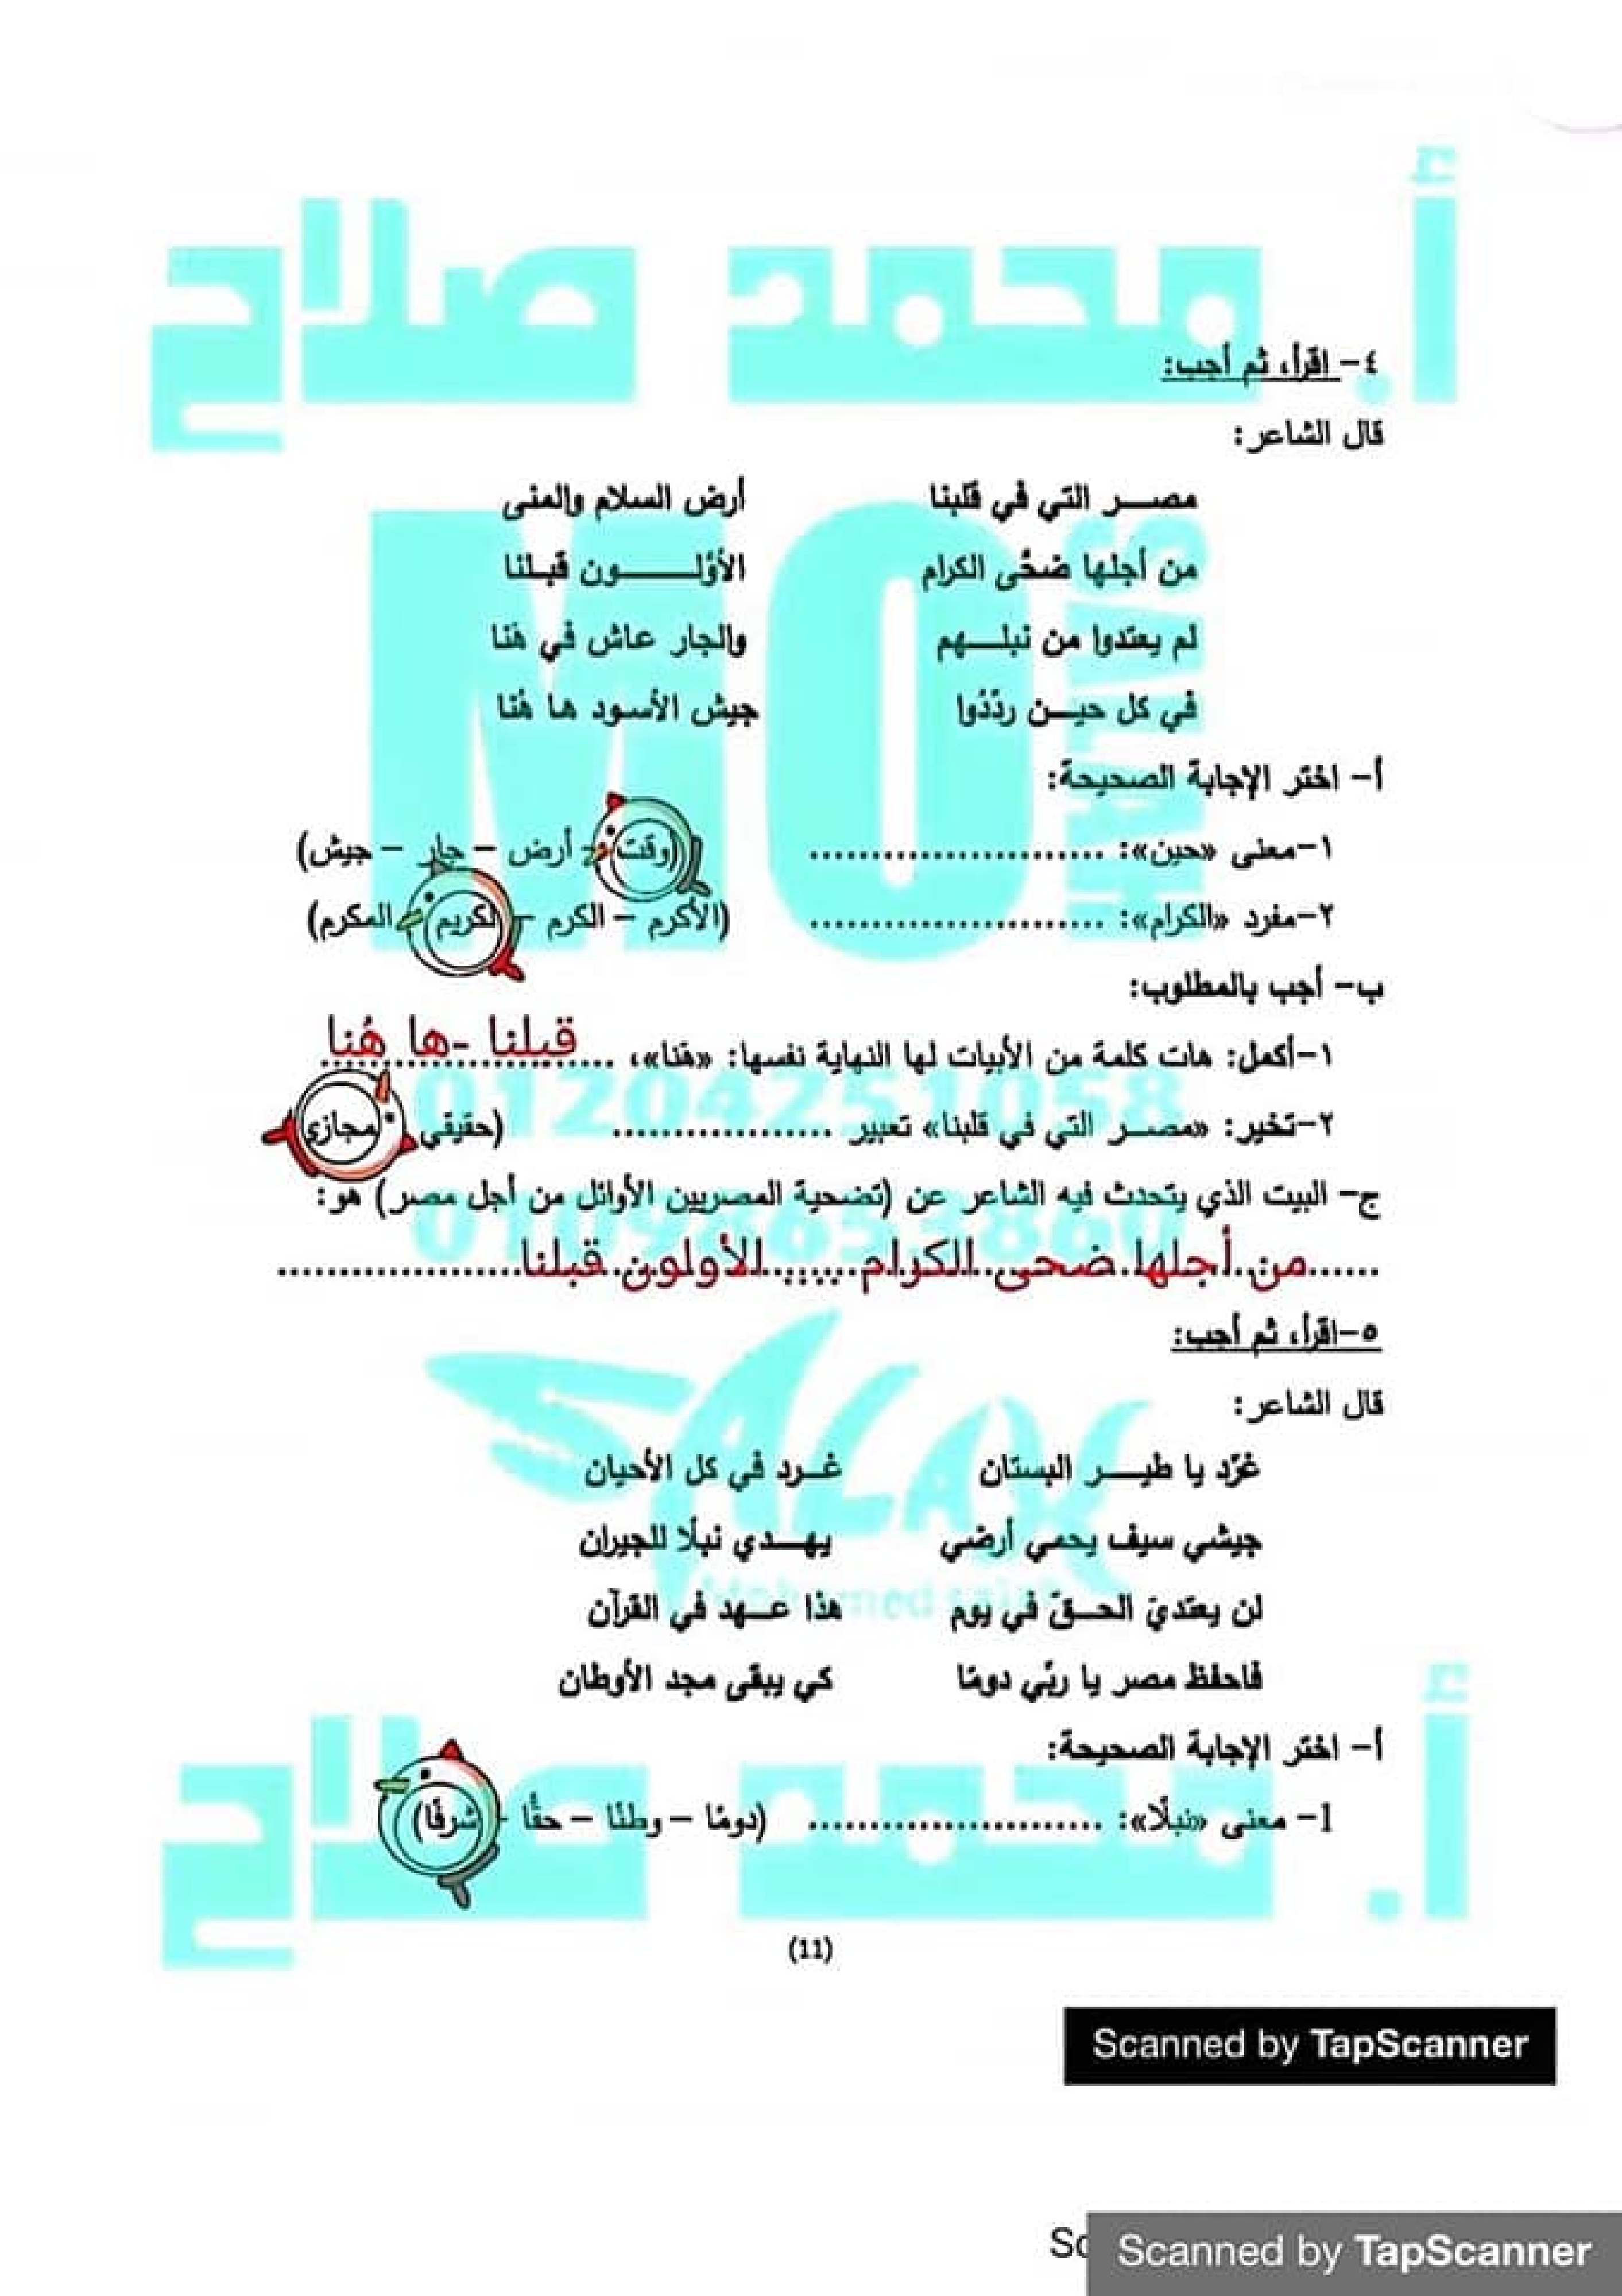 أ. محمد صلاح
٤- اقرأ، ثم أجب:
قال الشاعر:
مصـــر التي في قلبنا أرض السلام والمنى
من أجلها ضحَّى الكرام الأوَّلـــــــون قبلنا
لم يعتدوا من نبلـــهم والجار عاش في هَنا
في كل حيـــن ردِّدُوا جيش الأسود ها هُنا
أ- اختر الإجابة الصحيحة:
١-معنى «حين»: .......................... (وقت - أرض - جار - جيش)
٢-مفرد «الكرام»: .......................... (الأكرم - الكرم - الكريم - المكرم)
ب- أجب بالمطلوب:
١-أكمل: هات كلمة من الأبيات لها النهاية نفسها: «هَنا»، قبلنا -ها هُنا
٢-تخير: «مصـــر التي في قلبنا» تعبير ................... (حقيقي مجازي)
ج- البيت الذي يتحدث فيه الشاعر عن (تضحية المصريين الأوائل من أجل مصر) هو:
من أجلها ضحى الكرام ..... للأولون قبلنا
٥-اقرأ، ثم أجب:
قال الشاعر:
غرِّد يا طيـــر البستان غـــرد في كل الأحيان
جيشي سيف يحمي أرضي يهـــدي نبلًا للجيران
لن يعتديَ الحــقّ في يوم هذا عـــهد في القرآن
فاحفظ مصر يا ربّي دومًا كي يبقى مجد الأوطان
أ- اختر الإجابة الصحيحة:
1- معنى «نبلًا»: .......................... (دومًا - وطنًا - حقًّا - شرفًا)
أ. محمد صلاح
(11)
MO
SALAH
01204251058
Scanned by TapScanner
Scanned by TapScanner